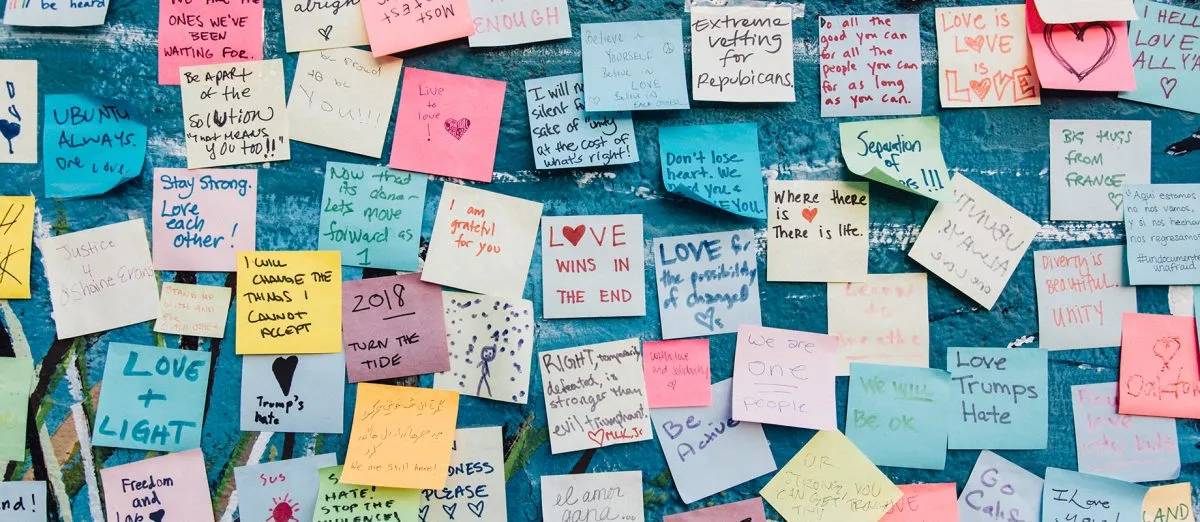 'll be heard
ONES WE'VE
BEEN
WAITING FOR.
MOST
ENOUGH
Believe in
YOURSELF
Believe in
LOVE
Believe in
EACH OTHER
Extreme
vetting
for
Repubicans.
Do all the
good you can
for all the
people you can
for as long
as you can.
LOVE IS
LOVE
IS
LOVE
LOVE
ALL Y'A
UBUNTU
ALWAYS.
One Love.
BE APART
of the
SOLUTION
"that MEANS
YOU TOO!!"
be proud
to be
YOU!!!
Live
to
love
!
I will
silent
sake of "unity"
at the cost of
what's right!
Don't lose
heart. We
need you &
LOVE YOU.
Separation
of
!!!
BIG HUGS
FROM
FRANCE
Aqui estamos
no nos vamos,
y si nos hechan
nos regresamos
#undocumented
unafraid
Stay Strong.
Love
each
other!
Now that
its done~
Lets move
forward as
1
I am
grateful
for you
Where there
is
There is life.
UBUNTU
ALWAYS.
Justice
4
Shaine Evans
STAND UP
I WILL
CHANGE THE
THINGS I
CANNOT
ACCEPT
2018
TURN THE
TIDE
LOVE
WINS IN
THE END
LOVE for
the possibility
of change!
DIVERTY IS
BEAUTIFUL.
UNITY
LOVE
+
LIGHT
Trump's
hate
RIGHT, temporarily
defeated, is
stronger than
evil triumphant!
MLK Jr
With love
and solidarity
We are
one
people
We WILL
Be OK
Love
Trumps
Hate
We are Still here!
Be
Active
Freedom
and
Love
SUS
HATE!
STOP THE
VIOLENCE!
PLEASE
el amor
gana...
Go
Cals
I Love
LAND